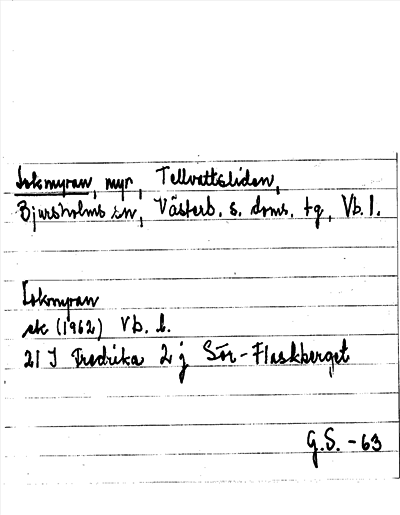 Lokmyran, myr, Tellvattsliden,
Bjursholms sn, Västerb. s. doms. tg, Vb. l.
Lokmyran
ek (1962) Vb. l.
21 J Fredrika 2 j Sör-Flaskberget
G.S. -63